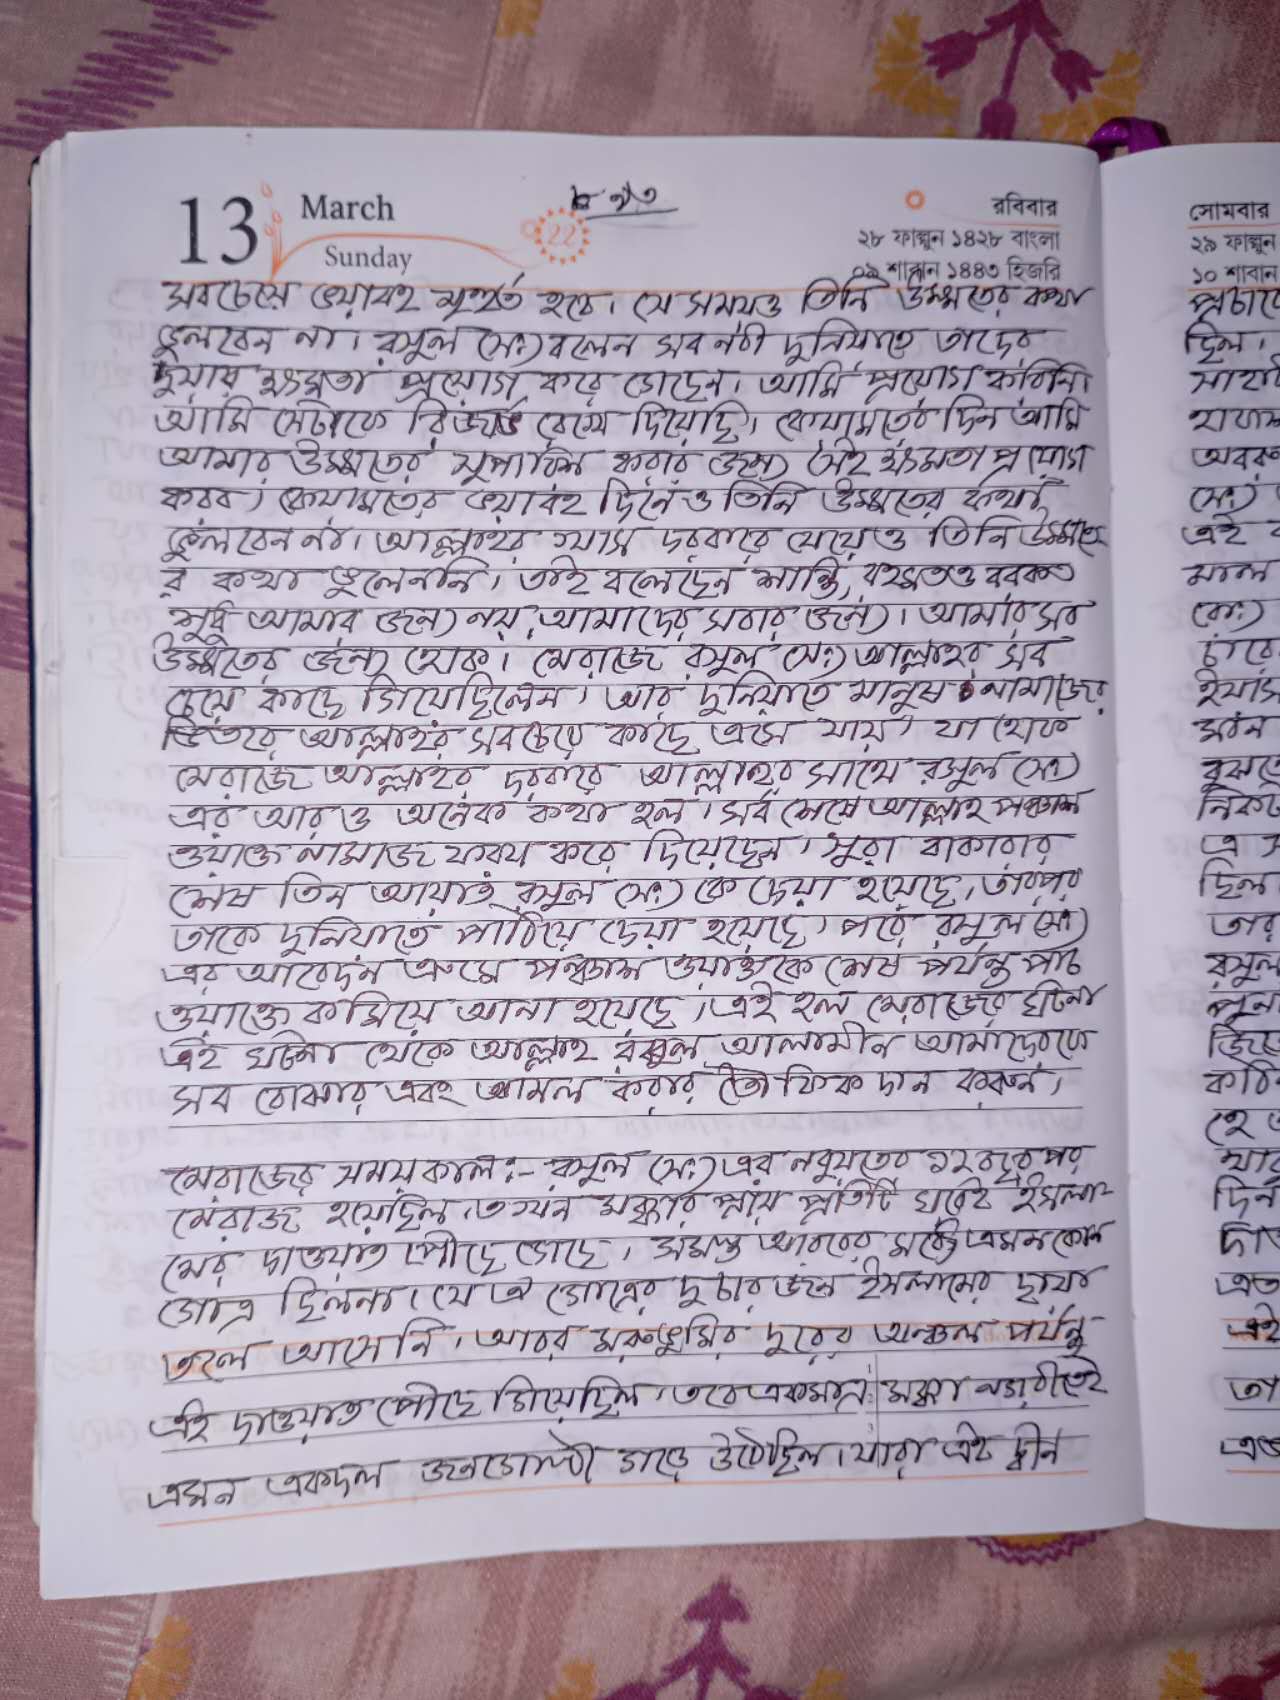 13 March
Sunday
22
রবিবার
২৮ ফাল্গুন ১৪২৮ বাংলা
০৯ শাবান ১৪৪৩ হিজরি
সবচেয়ে ভয়াবহ মূহুর্ত হবে। সে সময়ও তিনি উম্মতের কথা
ভুলবেন না। রসুল (সঃ) বলেন সব নবী দুনিয়াতে তাদের
দুয়ার ক্ষমতা প্রয়োগ করে গেছেন। আমি প্রয়োগ করিনি।
আমি সেটাকে রিজার্ভ রেখে দিয়েছি। কেয়ামতের দিন আমি
আমার উম্মতের সুপারিশ করার জন্য সেই ক্ষমতা প্রয়োগ
করব। কেয়ামতের ভয়াবহ দিনেও তিনি উম্মতের কথা
ভুলবেন না। আল্লাহর খাস দরবারে যেয়েও তিনি উম্মতে
র কথা ভুলেননি। তাই বলেছেন শান্তি, রহমত ও বরকত
শুধু আমার জন্য নয়, আমাদের সবার জন্য। আমার সব
উম্মতের জন্য হোক। মেরাজে রসুল (সঃ) আল্লাহর সব
চেয়ে কাছে গিয়েছিলেন। আর দুনিয়াতে মানুষ নামাজের
ভিতরে আল্লাহর সবচেয়ে কাছে এসে যায়। যা হোক
মেরাজে আল্লাহর দরবারে আল্লাহর সাথে রসুল (সঃ)
এর আরও অনেক কথা হল। সর্ব শেষে আল্লাহ পঞ্চাশ
ওয়াক্ত নামাজ ফরয করে দিয়েছেন। সুরা বাকারার
শেষ তিন আয়াত রসুল (সঃ) কে দেয়া হয়েছে। তারপর
তাকে দুনিয়াতে পাঠিয়ে দেয়া হয়েছে। পরে রসুল (সঃ)
এর আবেদন ক্রমে পঞ্চাশ ওয়াক্তকে শেষ পর্যন্ত পাচ
ওয়াক্তে কমিয়ে আনা হয়েছে। এই হল মেরাজের ঘটনা
এই ঘটনা থেকে আল্লাহ রব্বুল আলামীন আমাদেরকে
সব বোঝার এবং আমল করার তৌফিক দান করুন।
মেরাজের সময়কাল:- রসুল (সঃ) এর নবুয়তের ১২ বছর পর
মেরাজ হয়েছিল। তখন মক্কার প্রায় প্রতিটি ঘরেই ইসলা-
মের দাওয়াত পৌছে গেছে। সমস্ত আরবের মধ্যে এমন কোন
গোত্র ছিলনা। যে ঐ গোত্রের দু চার জন ইসলামের ছায়া
তলে আসেনি। আরব মরুভুমির দুরের অঞ্চল পর্যন্ত
এই দাওয়াত পৌছে গিয়েছিল। তবে একমাত্র মক্কা নগরীতেই
এমন একদল জনগোষ্ঠী গড়ে উঠেছিল। যারা এই দ্বীন
সোমবার
২৯ ফাল্গুন
১০ শাবান
ছিল।
(সঃ)
এই